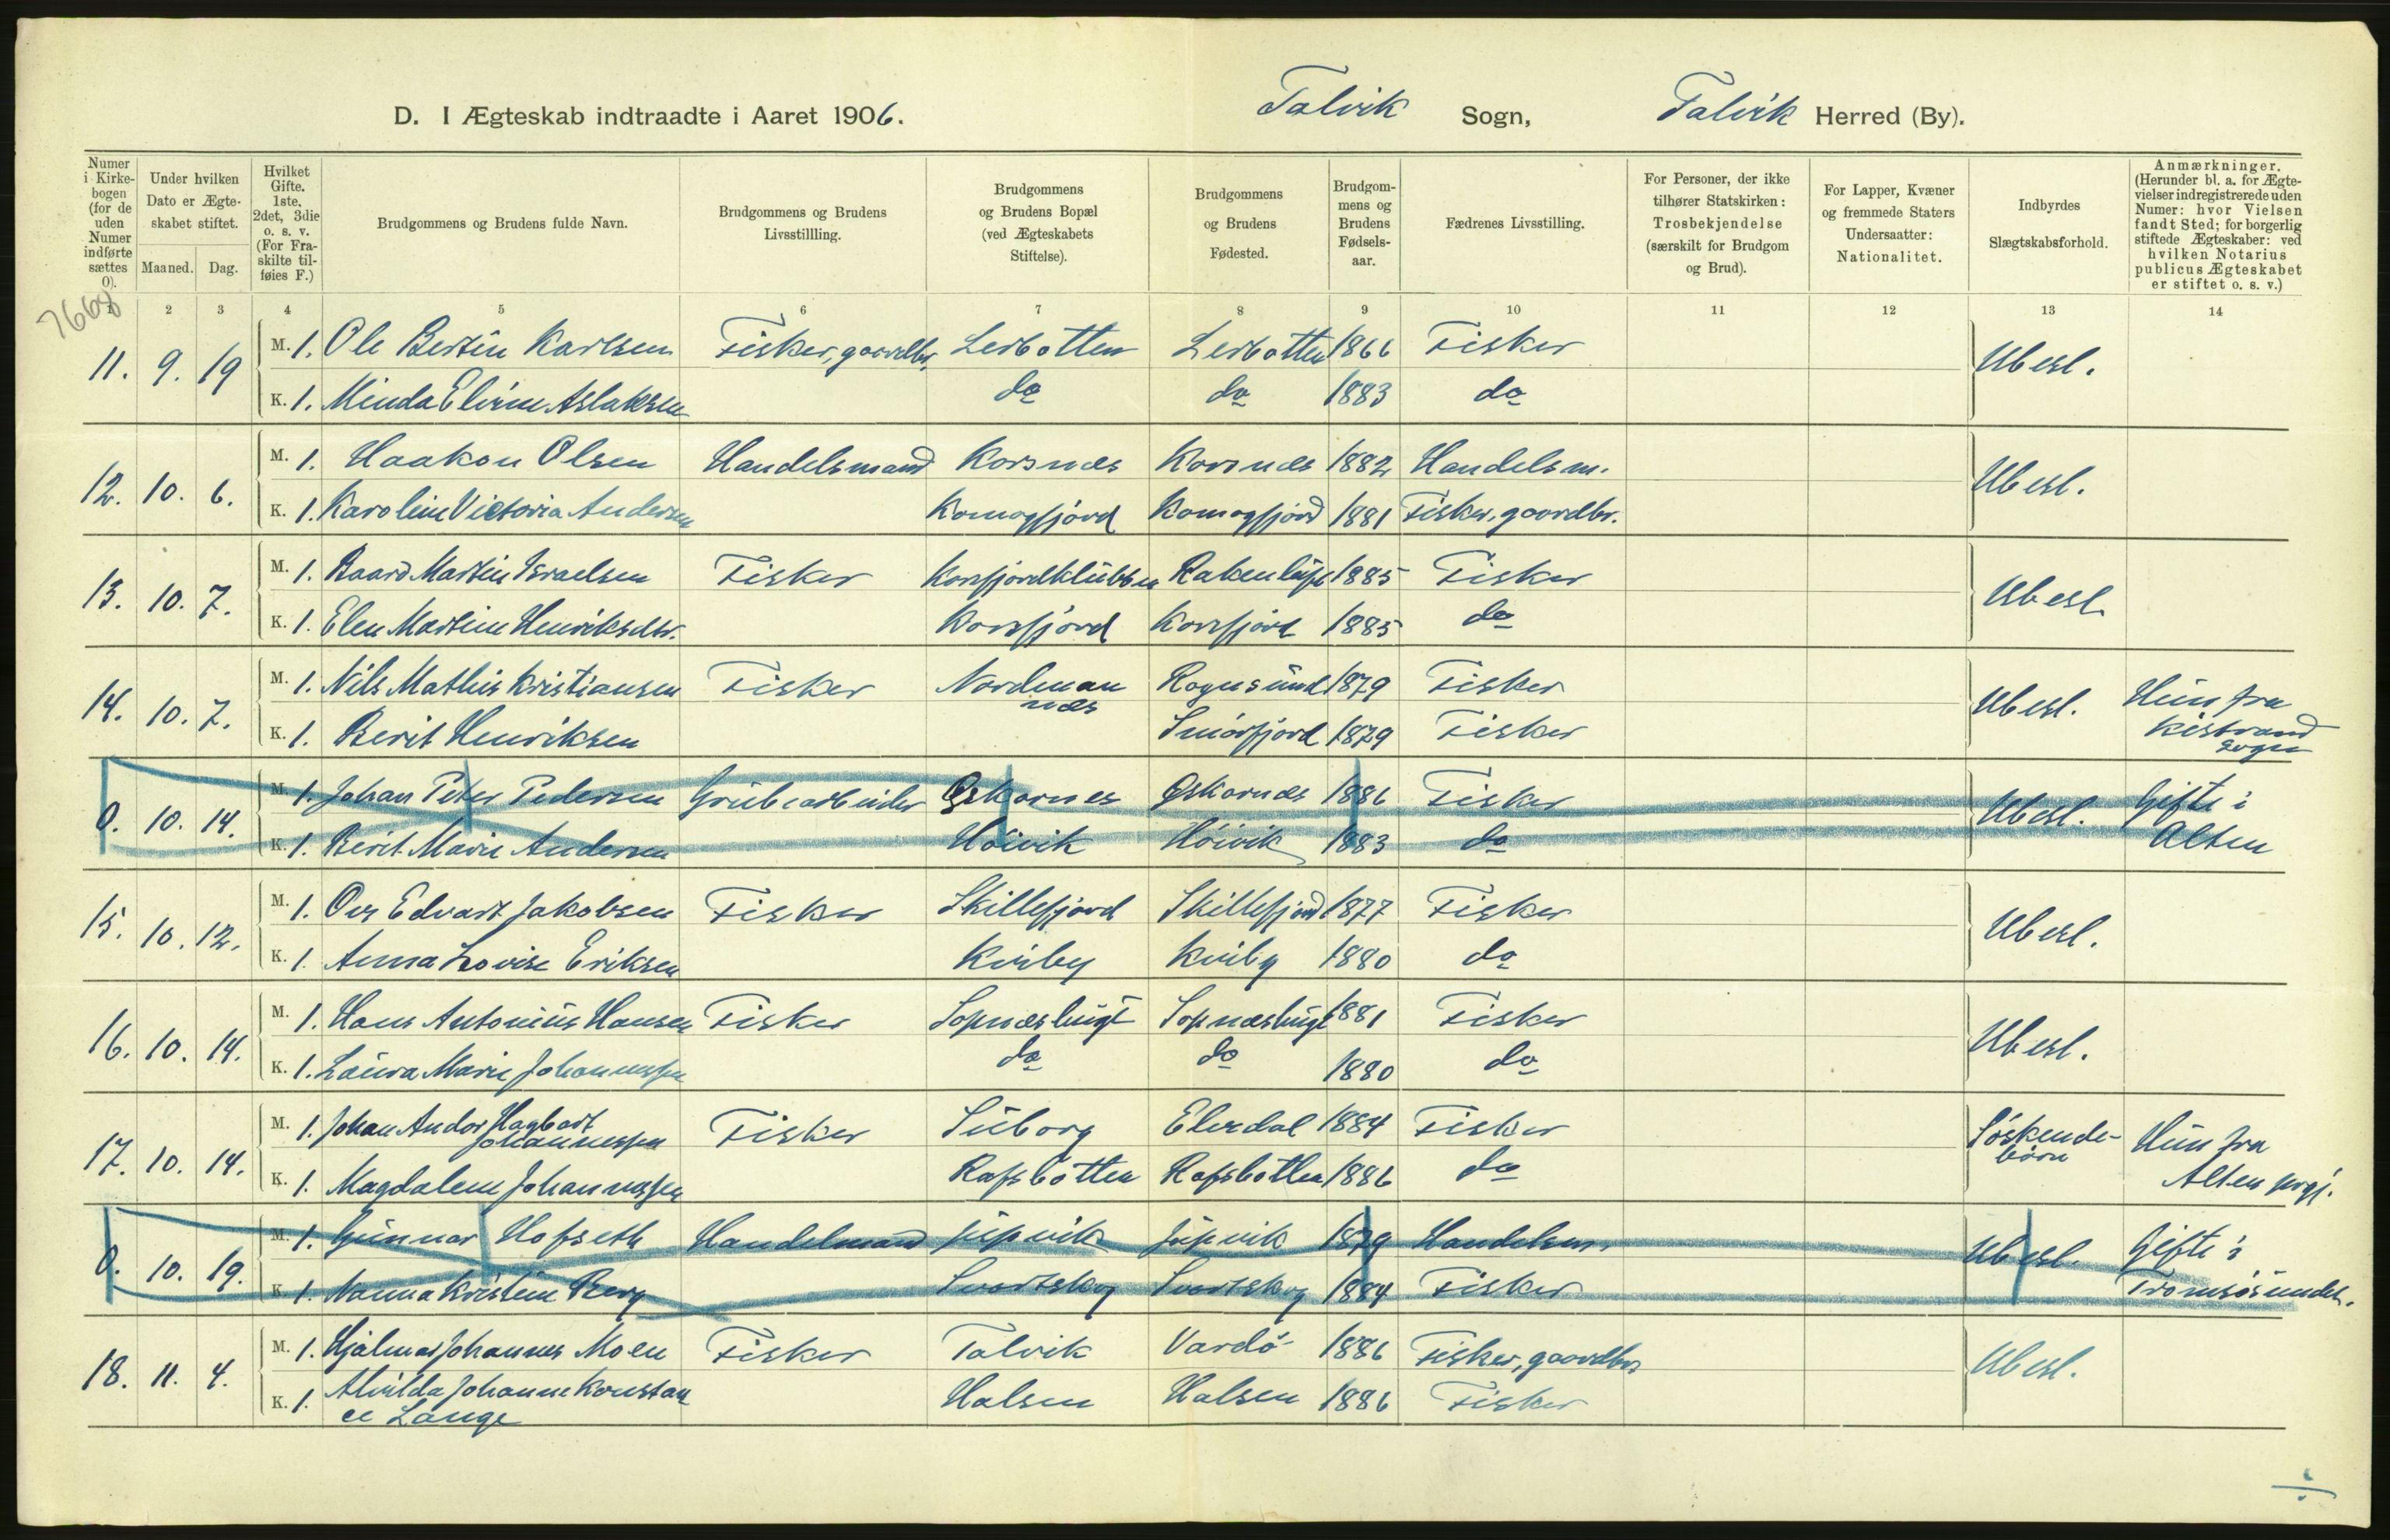 D. I Ægteskab indtraadte i Aaret 1906. Talvik Sogn, Talvik Herred (By).
Numer i Kirkebogen (for de uden Numer indførte sættes 0).
Under hvilken Dato er Ægteskabet stiftet.
Maaned. Dag.
Hvilket Gifte. 1ste, 2det, 3die o. s. v. (For Fraskilte tilføies F.)
Brudgommens og Brudens fulde Navn.
Brudgommens og Brudens Livsstillling.
Brudgommens og Brudens Bopæl (ved Ægteskabets Stiftelse).
Brudgommens og Brudens Fødested.
Brudgommens og Brudens Fødselsaar.
Fædrenes Livsstilling.
For Personer, der ikke tilhører Statskirken: Trosbekjendelse (særskilt for Brudgom og Brud).
For Lapper, Kvæner og fremmede Staters Undersaatter: Nationalitet.
Indbyrdes Slægtskabsforhold.
Anmærkninger. (Herunder bl. a. for Ægtevielser indregistrerede uden Numer: hvor Vielsen fandt Sted; for borgerlig stiftede Ægteskaber: ved hvilken Notarius publicus Ægteskabet er stiftet o. s. v.)
7668
1 2 3 4 5 6 7 8 9 10 11 12 13 14
11. 9. 19 M. 1. Ole Bertin Karlsen Fisker, gaardbr. Lerbotten Lerbotten 1866 Fisker Ubesl.
K. 1. Minda Elirine Aslaksen do do 1883 do
12. 10. 6. M. 1. Haakon Olsen Handelsmand Korsnæs Korsnæs 1882 Handelsm. Ubesl.
K. 1. Karoline Victoria Andersen Komagfjord Komagfjord 1881 Fisker, gaardbr.
13. 10. 7. M. 1. Baard Martin Israelsen Fisker Korsfjordklubben 1885 Fisker Ubesl.
K. 1. Elen Martine Henriksdtr. Korsfjord Korsfjord 1885 do
14. 10. 7. M. 1. Nils Mathis Kristiansen Fisker Nordmannæs Rognsund 1879 Fisker Ubesl. Hun fra Kistrand Sogn
K. 1. Berit Henriksen Smørfjord 1879 Fisker
0. 10. 14. M. 1. Johan Peter Pedersen Grubearbeider Øskarnes Øskarnæs 1886 Fisker Ubesl. Gifte i Alten
K. 1. Berit Marie Andersen Høivik Høivik 1883 do
15. 10. 12. M. 1. Ove Edvart Jakobsen Fisker Skillefjord Skillefjord 1877 Fisker Ubesl.
K. 1. Anna Lovise Eriksen Kviby Kviby 1880 do
16. 10. 14. M. 1. Hans Antonius Hansen Fisker Sopnæsbugt Sopnæsbugt 1881 Fisker Ubesl.
K. 1. Laura Marie Johannessen do do 1880 do
17. 10. 14. M. 1. Johan Andor Hagbart Johannessen Fisker Suborg Elvedal 1884 Fisker Søskendebørn Hun fra Alten prgj.
K. 1. Magdalene Johannessen Rafsbotten Rafsbotten 1886 do
0. 10. 19. M. 1. Gunnar Hofseth Handelmand Jupvik Jupvik 1879 Handelsm. Ubesl. Gifte i Tromsøsundet.
K. 1. Nanna Kristine Berg Svartskog Svartskog 1884 Fisker
18. 11. 4. M. 1. Hjalmar Johannes Moen Fisker Talvik Vardø 1886 Fisker, gaardbr Ubesl.
K. 1. Alvilda Johanne Konstance Lange Halsen Halsen 1886 Fisker